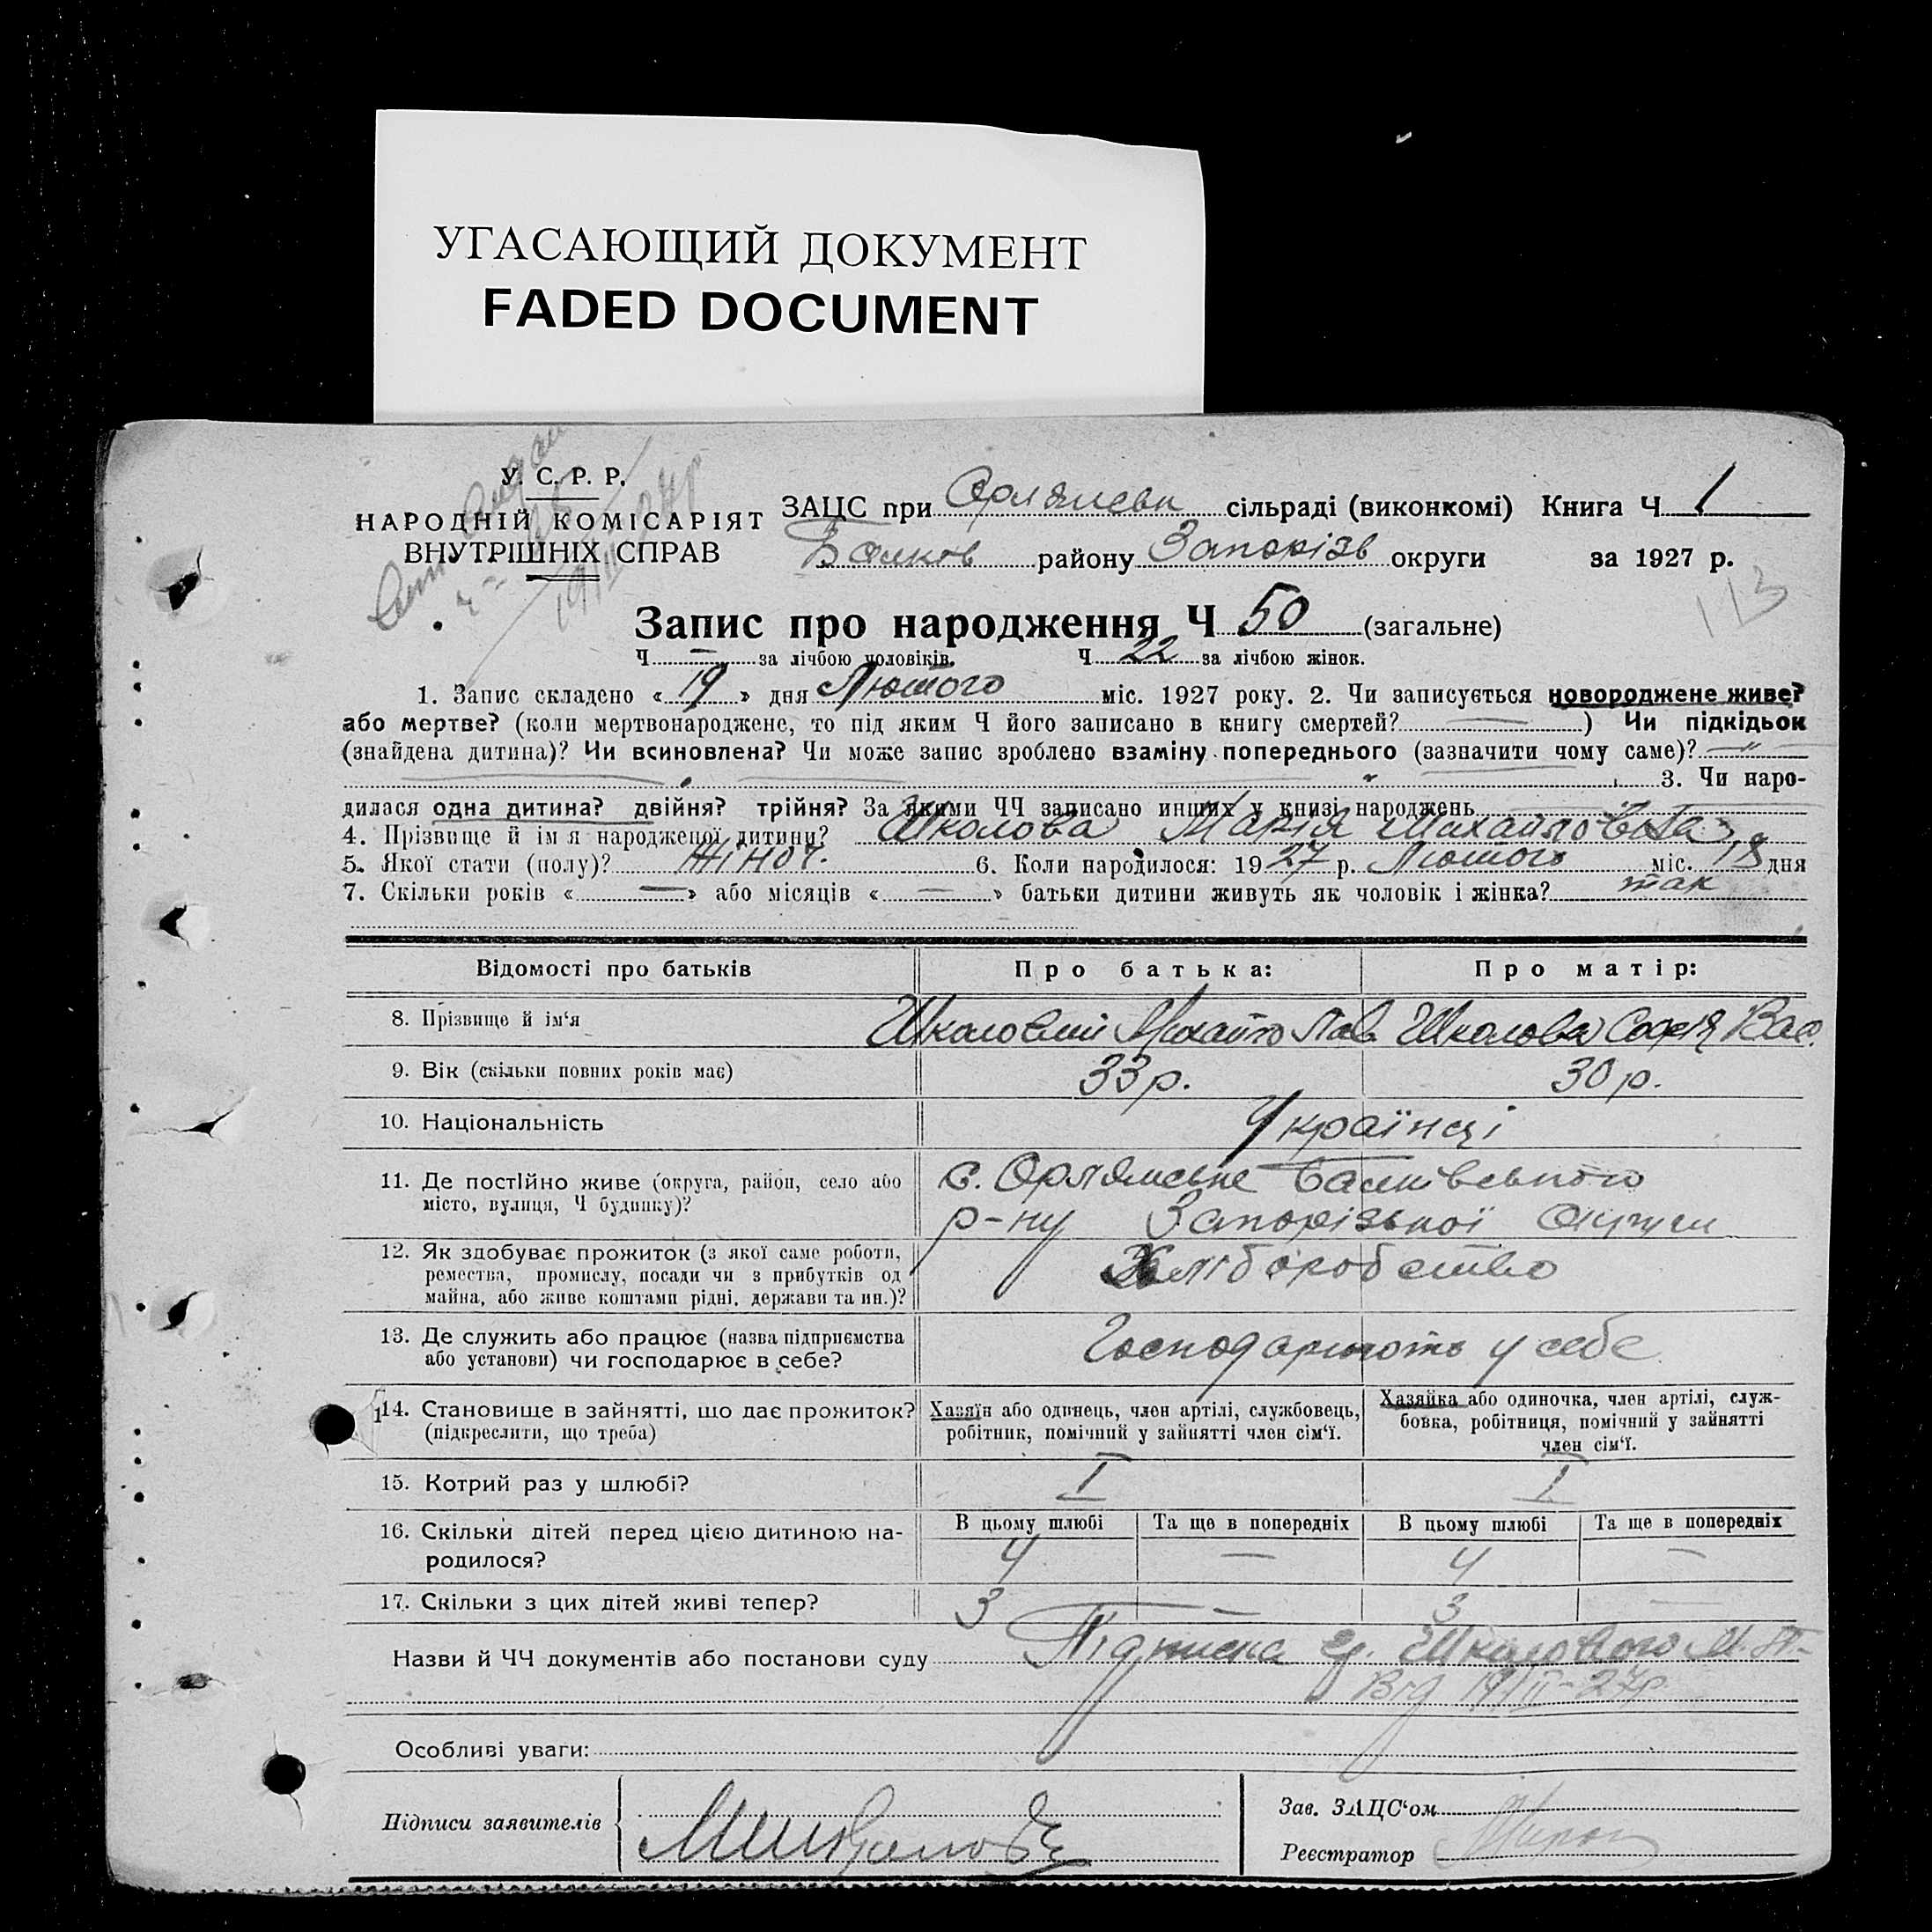 УГАСАЮЩИЙ ДОКУМЕНТ
FADED DOCUMENT
У. С. Р. Р.
НАРОДНІЙ КОМІСАРІЯТ
ВНУТРІШНІХ СПРАВ
ЗАЦС при Орлянськ сільраді (виконкомі) Книга Ч 1
Балков району Запоріз округи за 1927 р.
113
Запис про народження Ч 50 (загальне)
Ч — за лічбою чоловіків. Ч 22 за лічбою жінок.
1. Запис складено « 19 » дня Лютого міс. 1927 року. 2. Чи записується новороджене живе?
або мертве? (коли мертвонароджене, то під яким Ч його записано в книгу смертей? — ) Чи підкідьок
(знайдена дитина)? Чи всиновлена? Чи може запис зроблено взаміну попереднього (зазначити чому саме)? — " —
3. Чи наро-
дилася одна дитина? двійня? трійня? За якими ЧЧ записано инших у книзі народжень
4. Прізвище й імя народженої дитини? Школова Марія Михайловна
5. Якої стати (полу)? Жіноч. 6. Коли народилося: 1927 р. Лютого міс. 18 дня
7. Скільки років « — » або місяців « — » батьки дитини живуть як чоловік і жінка? так
Відомості про батьків Про батька: Про матір:
8. Прізвище й ім‘я Школовий Михайло Пав. Школова Софія Вас.
9. Вік (скільки повних років має) 33 р. 30 р.
10. Національність Українці
11. Де постійно живе (округа, район, село або с. Орлянське Балківського
місто, вулиця, Ч будинку)? р-ну Запорізької Округи
12. Як здобуває прожиток (з якої саме роботи, Хліборобство
ремества, промислу, посади чи з прибутків од
майна, або живе коштами рідні, держави та ин.)?
13. Де служить або працює (назва підприємства Господарюють у себе
або установи) чи господарює в себе?
14. Становище в зайнятті, що дає прожиток? Хазяїн або одинець, член артілі, службовець, Хазяйка або одиночка, член артілі, служ-
(підкреслити, що треба) робітник, помічний у зайнятті член сім‘ї. бовка, робітниця, помічний у зайнятті
член сім‘ї.
15. Котрий раз у шлюбі? I I
16. Скільки дітей перед цією дитиною на- В цьому шлюбі Та ще в попередніх В цьому шлюбі Та ще в попередніх
родилося? 4 — 4 —
17. Скільки з цих дітей живі тепер? 3 — 3 —
Назви й ЧЧ документів або постанови суду Підписка гр. Школового М. П.
Від 19/II-27р.
Особливі уваги:
Підписи заявителів
Зав. ЗАЦС‘ом
Реєстратор